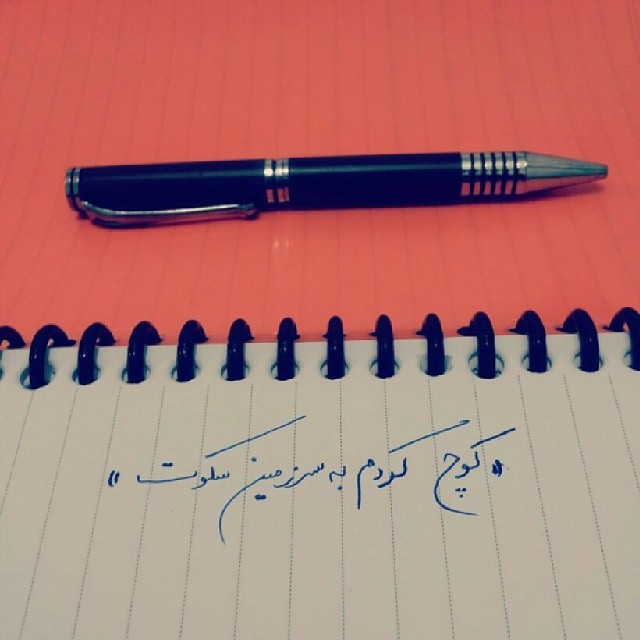 « کوچ کردم به سرزمین سکوت »